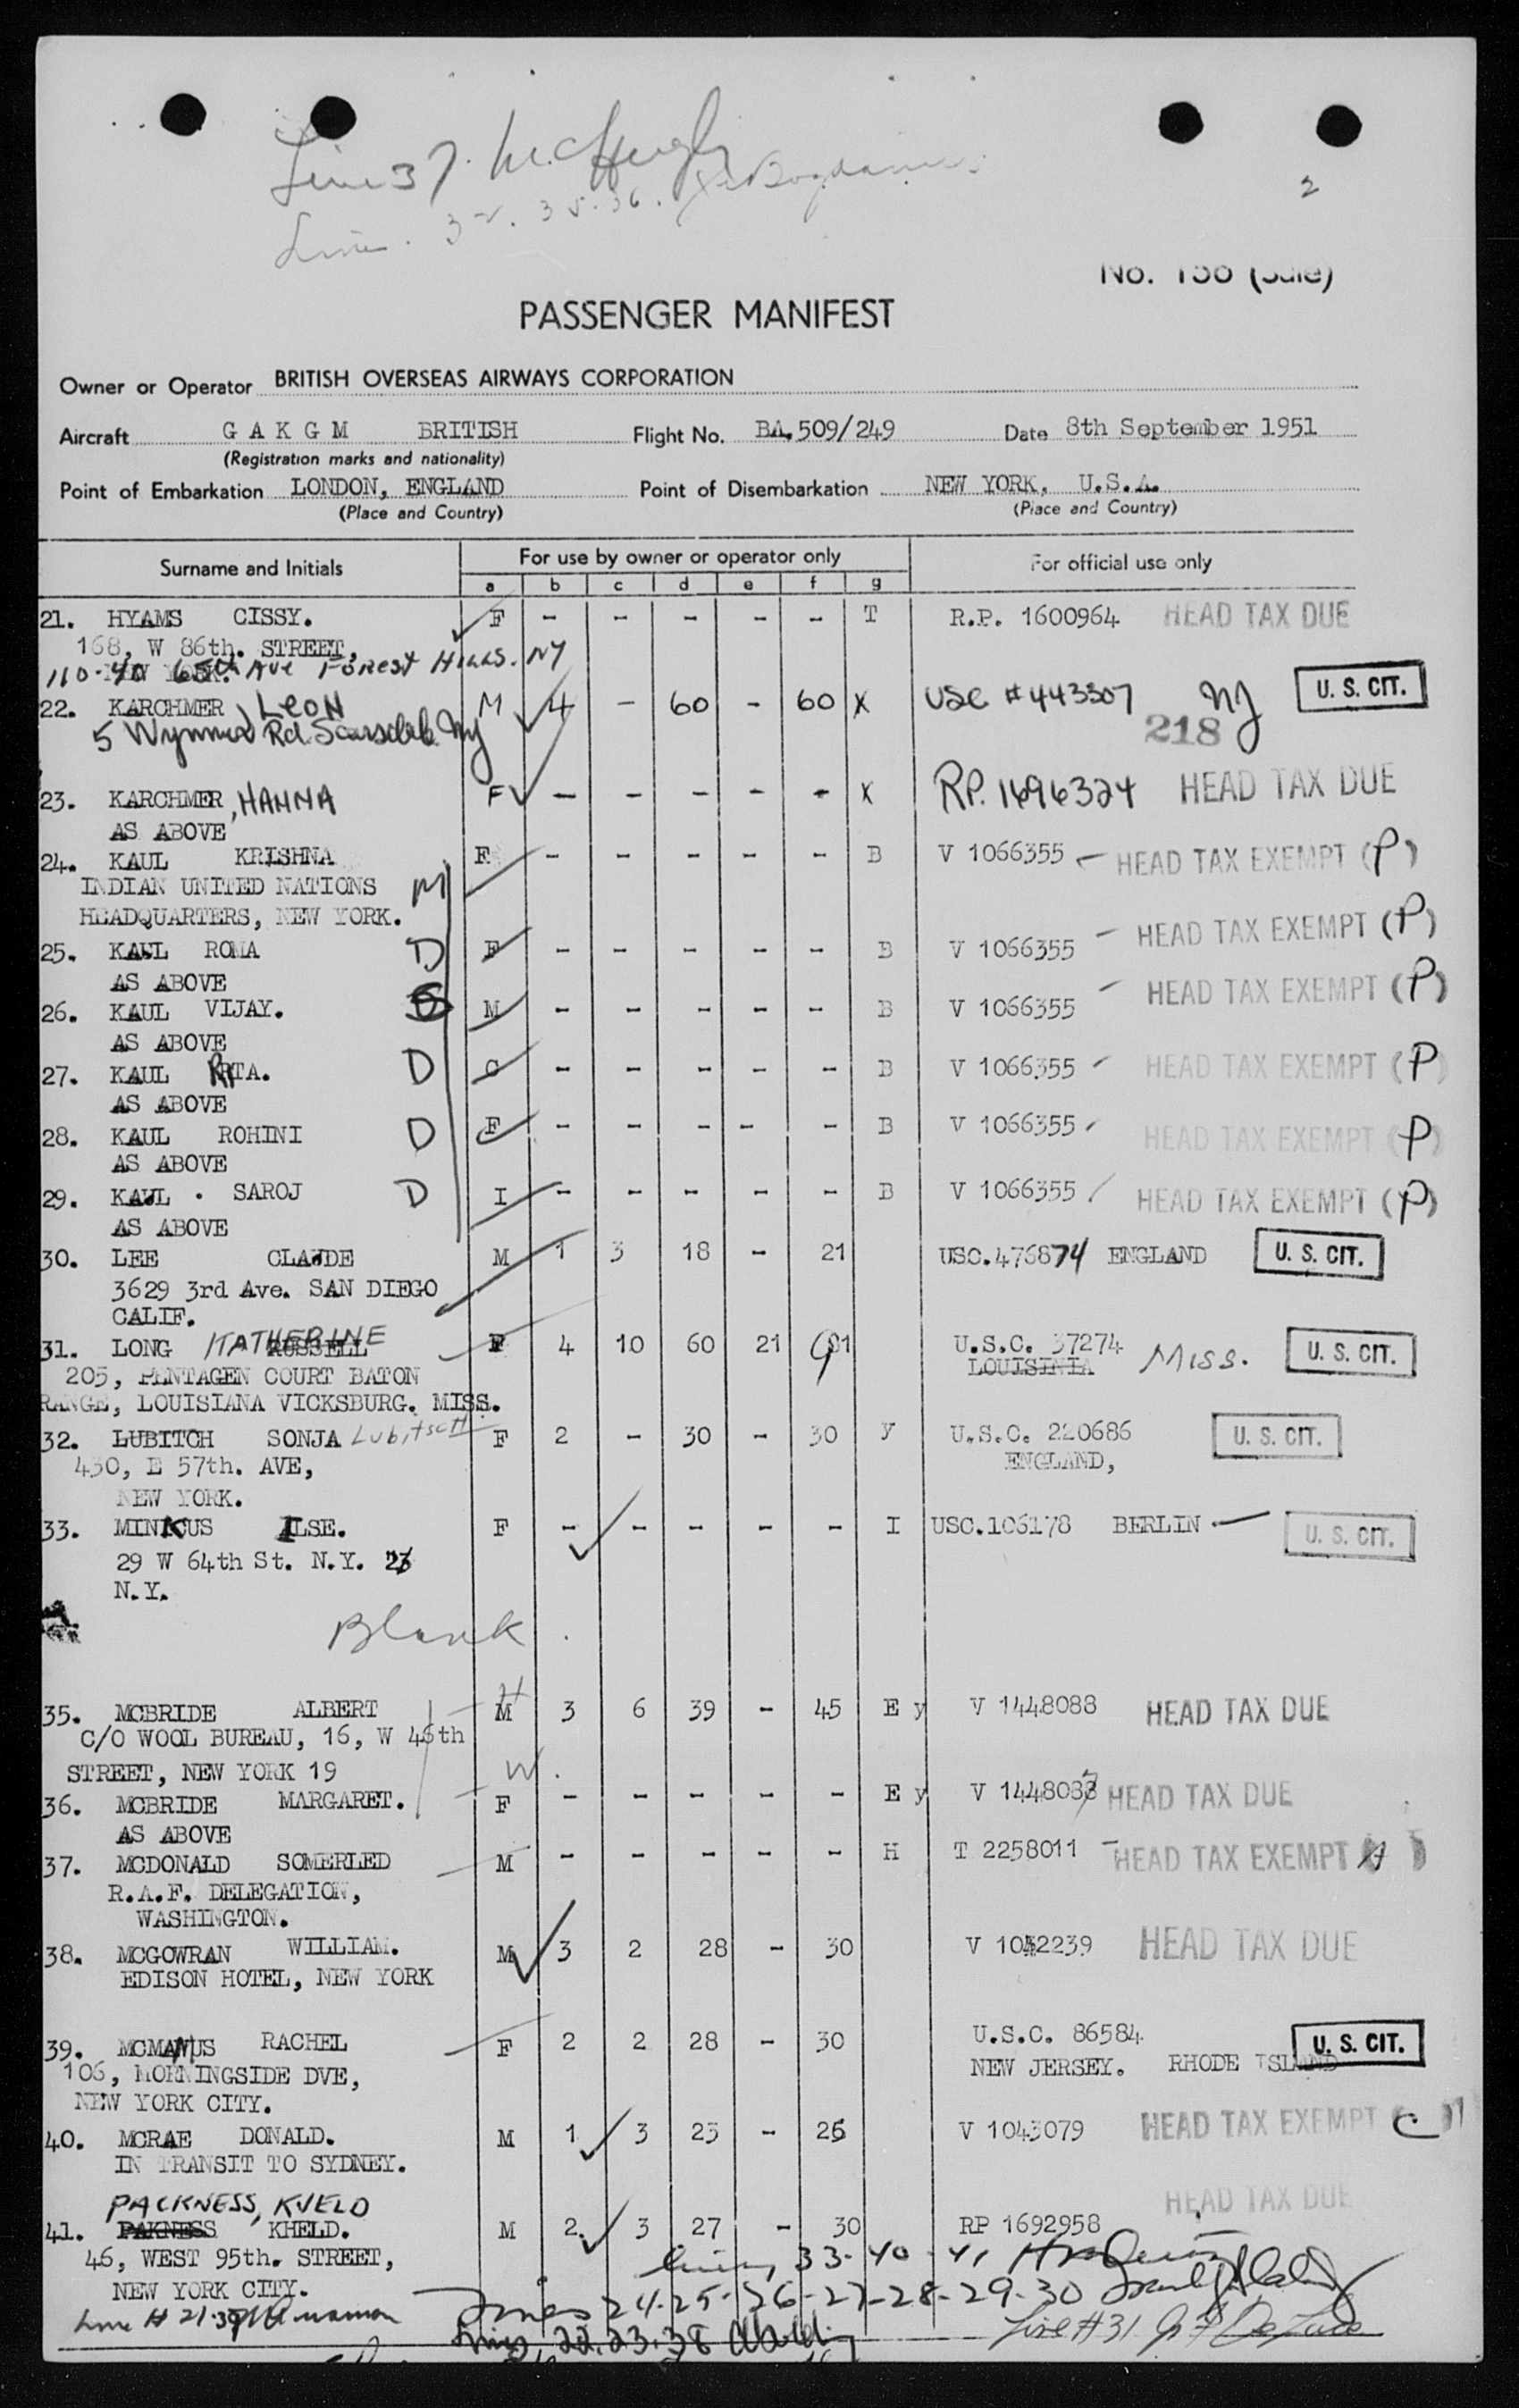 Line 37. McHugh
Line. 32. 35. 36.
2
No. 158 (Sale)
PASSENGER MANIFEST
Owner or Operator BRITISH OVERSEAS AIRWAYS CORPORATION
Aircraft G A K G M BRITISH Flight No. BA.509/249 Date 8th September 1951
(Registration marks and nationality)
Point of Embarkation LONDON, ENGLAND Point of Disembarkation NEW YORK, U.S.A.
(Place and Country) (Place and Country)
Surname and Initials For use by owner or operator only For official use only
a b c d e f g
21. HYAMS CISSY. F - - - - - T R.P. 1600964 HEAD TAX DUE
168, W 86th. STREET,
NEW YORK.
110-40 65th Ave FOREST HILLS. NY
22. KARCHMER, LEON M 4 - 60 - 60 X USC #443507 NJ U. S. CIT.
5 Wynmor Rd. Scarsdale NY 218
23. KARCHMER, HANNA F - - - - - X RP. 1696324 HEAD TAX DUE
AS ABOVE
24. KAUL KRISHNA F - - - - - B V 1066355 - HEAD TAX EXEMPT (P)
INDIAN UNITED NATIONS M
HEADQUARTERS, NEW YORK.
25. KAUL ROMA D F - - - - - B V 1066355 - HEAD TAX EXEMPT (P)
AS ABOVE
26. KAUL VIJAY. S M - - - - - B V 1066355 - HEAD TAX EXEMPT (P)
AS ABOVE
27. KAUL RITA. D C - - - - - B V 1066355 - HEAD TAX EXEMPT (P)
AS ABOVE
28. KAUL ROHINI D F - - - - - B V 1066355 HEAD TAX EXEMPT (P)
AS ABOVE
29. KAUL . SAROJ D I - - - - - B V 1066355 HEAD TAX EXEMPT (P)
AS ABOVE
30. LEE CLAUDE M 1 3 18 - 21 USC.476874 ENGLAND U. S. CIT.
3629 3rd Ave. SAN DIEGO
CALIF.
31. LONG KATHERINE RUSSELL F 4 10 60 21 91 U.S.C. 37274 U. S. CIT.
205, PENTAGEN COURT BATON LOUISINIA MISS.
RANGE, LOUISIANA VICKSBURG. MISS.
32. LUBITCH SONJA Lubitsch F 2 - 30 - 30 y U.S.C. 220686 U. S. CIT.
430, E 57th. AVE, ENGLAND,
NEW YORK.
33. MINKUS ILSE. F - - - - - I USC.106178 BERLIN - U. S. CIT.
29 W 64th St. N.Y. 23
N.Y.
Blank.
35. MCBRIDE ALBERT H M 3 6 39 - 45 E y V 1448088 HEAD TAX DUE
C/O WOOL BUREAU, 16, W 46th
STREET, NEW YORK 19 W.
36. MCBRIDE MARGARET. F - - - - - E y V 1448087 HEAD TAX DUE
AS ABOVE
37. MCDONALD SOMERLED M - - - - - H T 2258011 - HEAD TAX EXEMPT
R.A.F. DELEGATION,
WASHINGTON.
38. MCGOWRAN WILLIAM. M 3 2 28 - 30 V 1042239 HEAD TAX DUE
EDISON HOTEL, NEW YORK
39. MCMANUS RACHEL F 2 2 28 - 30 U.S.C. 86584 U. S. CIT.
106, MORNINGSIDE DVE, NEW JERSEY. RHODE ISLAND
NEW YORK CITY.
40. MCRAE DONALD. M 1 3 23 - 26 V 1043079 HEAD TAX EXEMPT C
IN TRANSIT TO SYDNEY.
PACKNESS, KJELD HEAD TAX DUE
41. PAKNESS KHELD. M 2. 3 27 - 30 RP 1692958
46, WEST 95th. STREET,
NEW YORK CITY.
Lines 33-40-41
Lines 24-25-26-27-28-29-30
Line # 21-39
Lines 22.23.38
Line #31